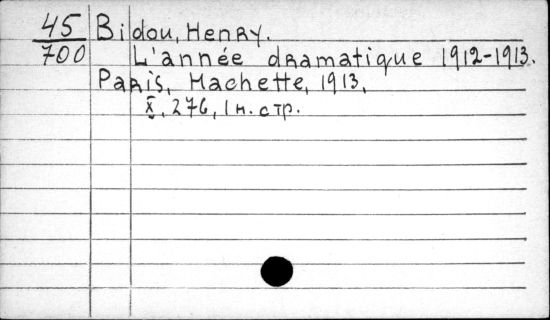 45 Bidou, Henry.
700 L'année dramatique 1912-1913.
Paris, Hachette, 1913.
X, 276, 1 н. стр.